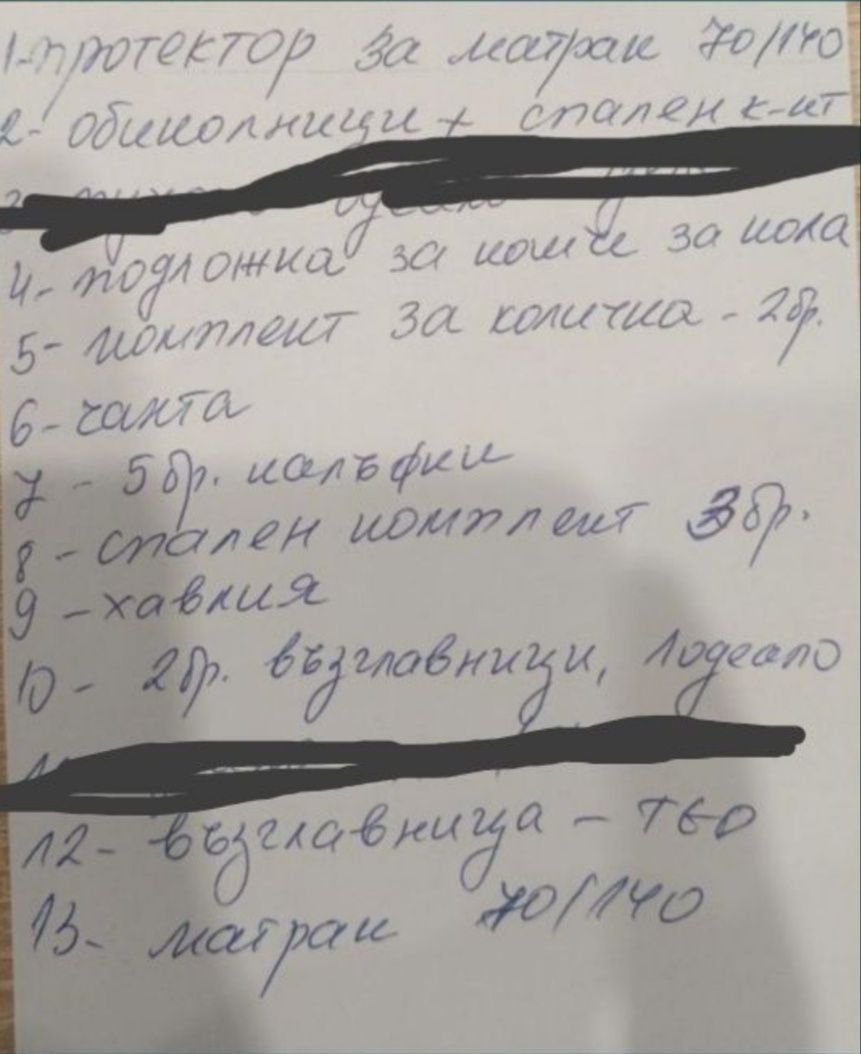 1-протектор за матрак 70/140
2- обиколници + спален к-кт
3- одеяло
4- подложка за комче за кола
5- комплект за количка - 2бр.
6- чанта
7 - 5бр. калъфки
8 - спален комплект 3бр.
9 - хавлия
10 - 2бр. възглавници, 1одеало
12- възглавница - ТЕО
13- матрак 70/140